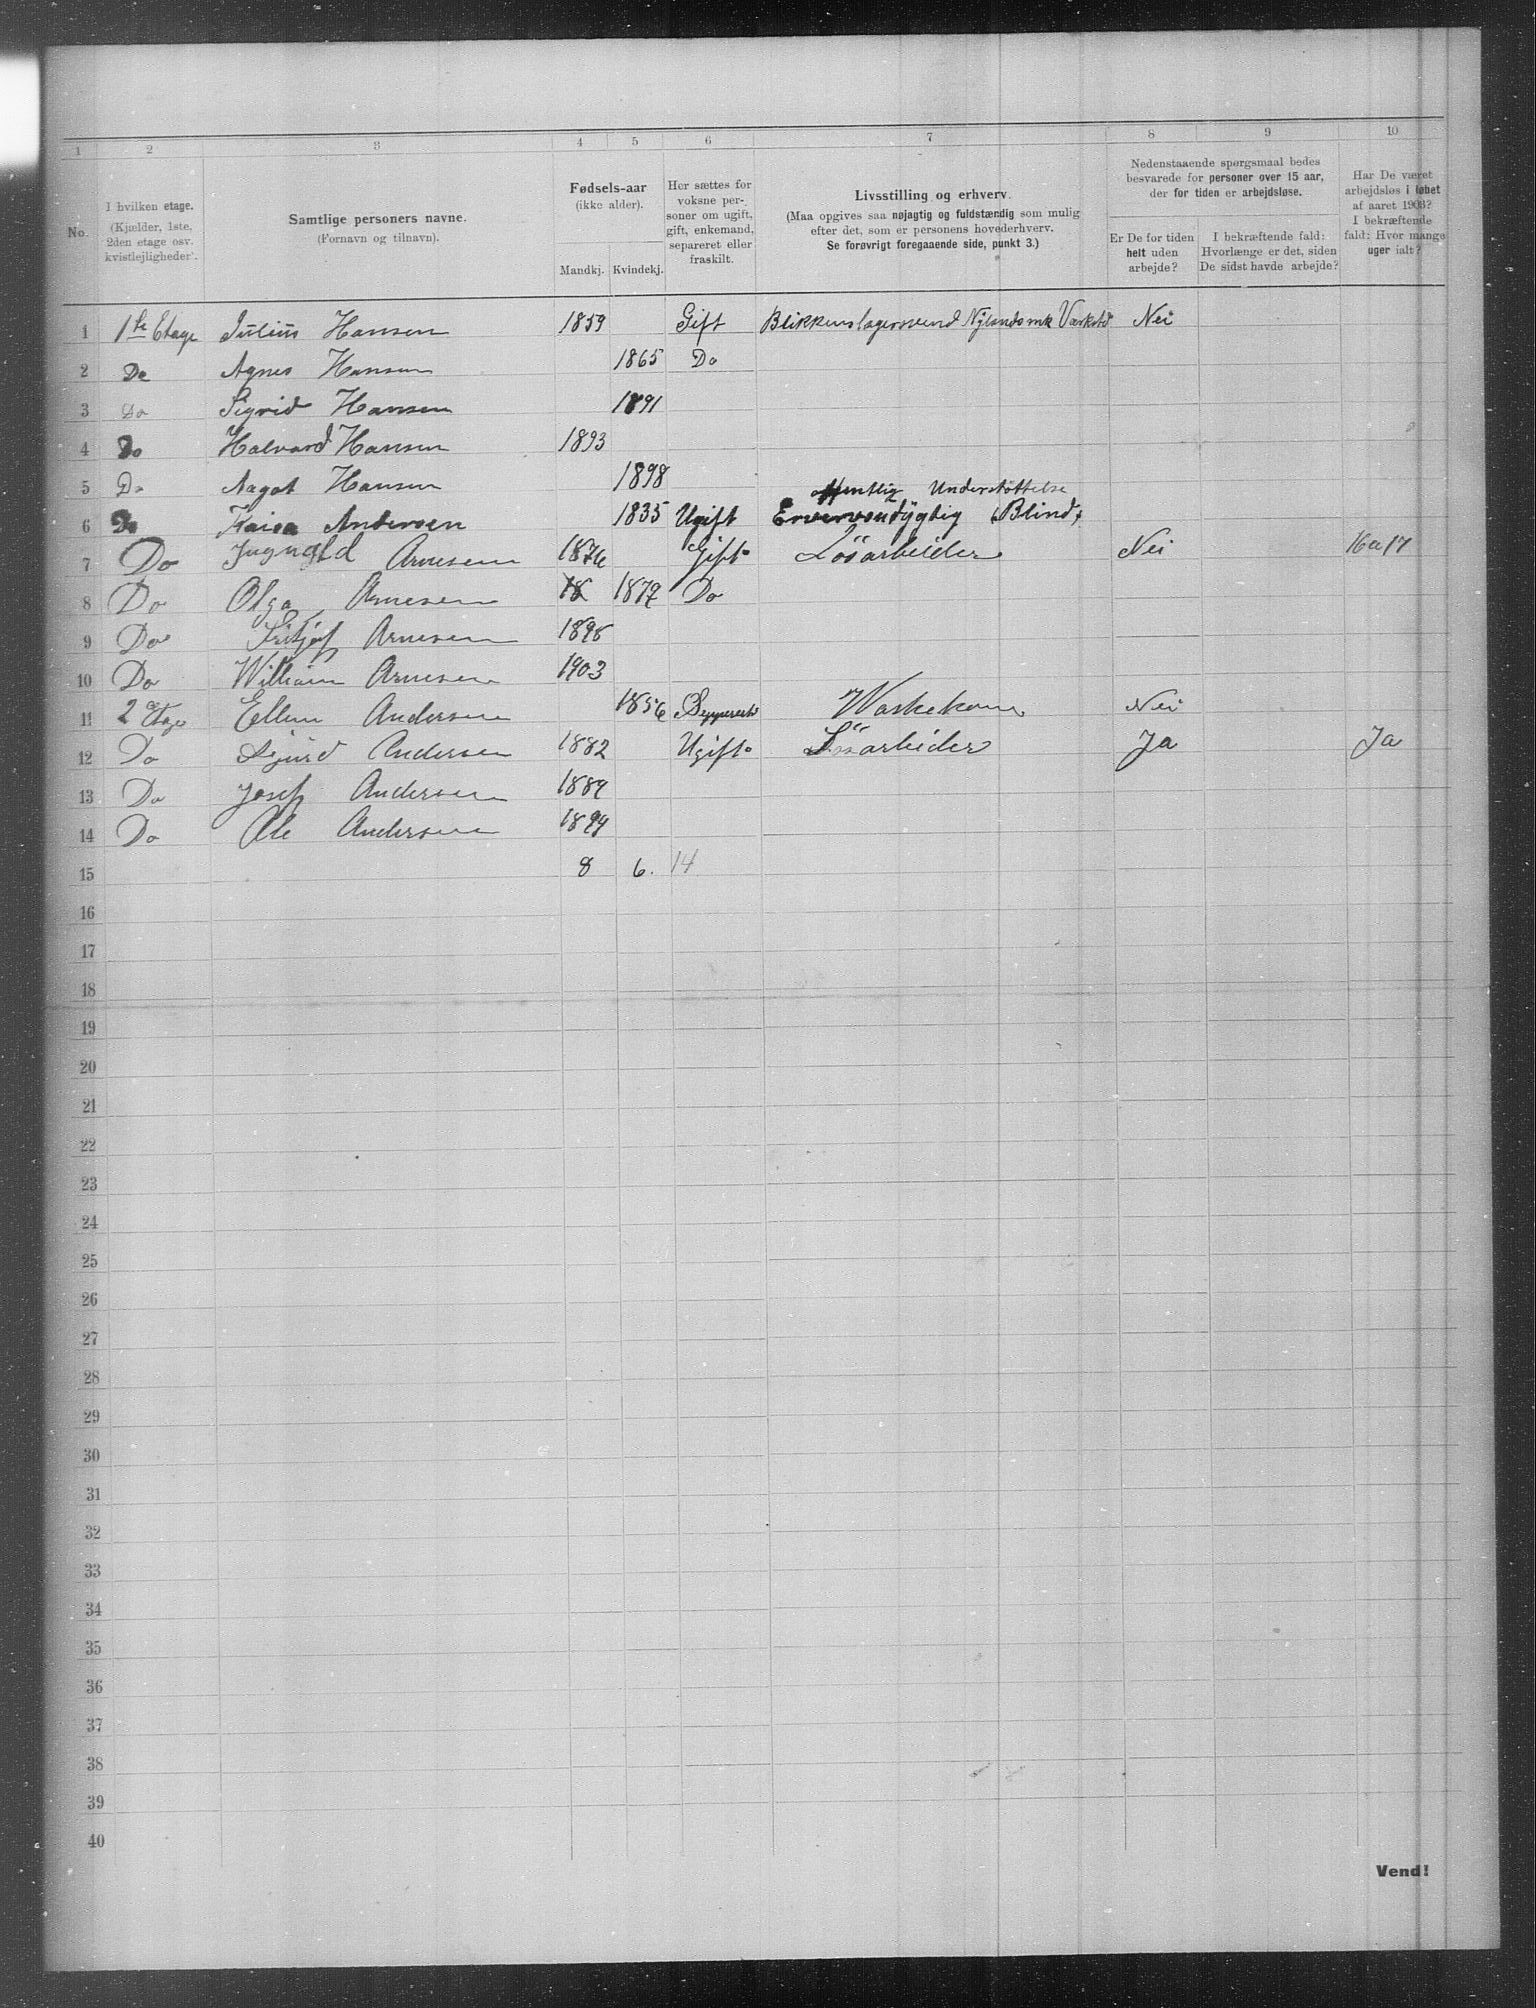 1 2 3 4 5 6 7 8 9 10
No.
I hvilken etage.
(Kjælder, 1ste,
2den etage osv.
kvistlejligheder).
Samtlige personers navne.
(Fornavn og tilnavn).
Fødsels-aar
(ikke alder).
Mandkj. Kvindekj.
Her sættes for
voksne per-
soner om ugift,
gift, enkemand,
separeret eller
fraskilt.
Livsstilling og erhverv.
(Maa opgives saa nøjagtig og fuldstændig som mulig
efter det, som er personens hovederhverv.
Se forøvrigt foregaaende side, punkt 3.)
Nedenstaaende spørgsmaal bedes
besvarede for personer over 15 aar,
der for tiden er arbejdsløse.
Er De for tiden
helt uden
arbejde?
I bekræftende fald:
Hvorlænge er det, siden
De sidst havde arbejde?
Har De været
arbejdsløs i løbet
af aaret 1903?
I bekræftende
fald: Hvor mange
uger ialt?
1 1ste Etage Julius Hansen 1859 Gift Blikkenslagersvend Nylands mk Værksted Nei
2 Do Agnes Hansen 1865 Do
3 Do Sigrid Hansen 1891
4 Do Halvard Hansen 1893
5 Do Aagot Hansen 1898
offentlig Understøttelse
6 Do Kaisa Andersen 1835 Ugift Ervervsudygtig (Blind)
7 Do Arnesen 1876 Gift Løsarbeider Nei 16 a 17
8 Do Olga Arnesen 18 Do
9 Do Fritjof Arnesen
10 Do William Arnesen 1903
11 2 Etage Ellen Andersen 1856 Vaskekone Nei
12 Do Andersen 1882 Ugift Løsarbeider Ja Ja
13 Do Josef Andersen 1889
14 Do Ole Andersen
15 8 6. 14
16
17
18
19
20
21
22
23
24
25
26
27
28
29
30
31
32
33
34
35
36
37
38
39
40
Vend!